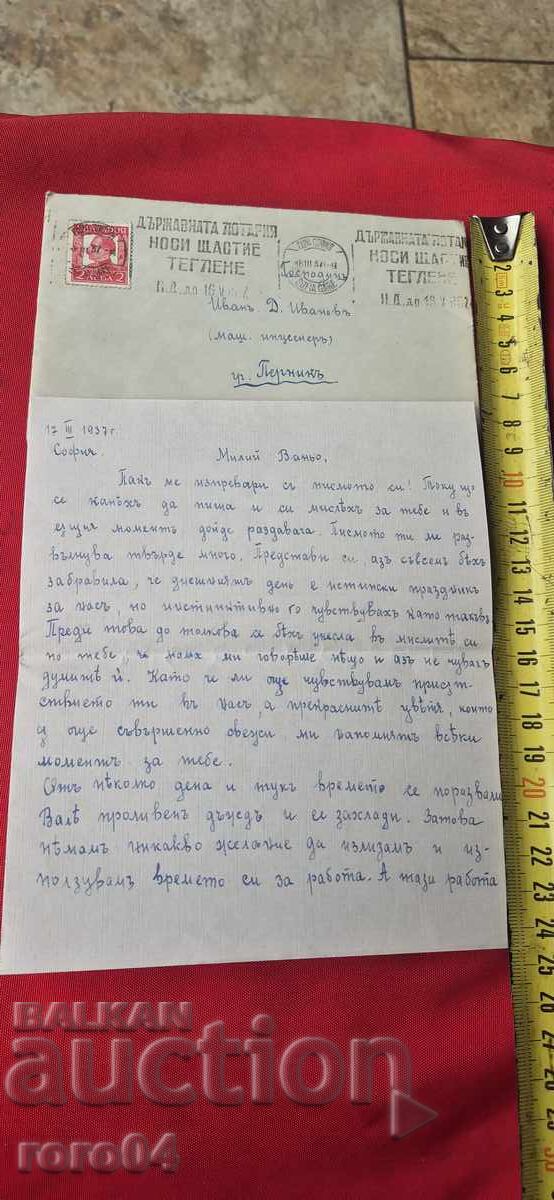 ДЪРЖАВНАТА ЛОТАРИЯ
НОСИ ЩАСТИЕ
ТЕГЛЕНЕ
ДЪРЖАВНАТА ЛОТАРИ
НОСИ ЩАСТИЕ
ТЕГЛЕНЕ
2
2
Господинъ
Иванъ Д. Ивановъ
(маш. инженеръ)
гр. Перникъ
17 III 1937 г.
София.
Милий Ваньо,
Пакъ ме изпревари съ писмото си! Току що
се канѣхъ да пиша и си мислѣхъ за тебе и въ
сѫщия моментъ дойде раздавача. Писмото ти ме раз-
вълнува твърде много. Представи си, азъ съвсемъ бѣхъ
забравила, че днешниятъ день е истински праздникъ
за насъ, но инстинктивно го чувствувахъ като такъвъ
Преди това до толкова се бѣхъ унесла въ мислитѣ си
по тебе, че мама ми говорѣше нѣщо и азъ не чувахъ
думитѣ ѝ. Като че ли още чувствувамъ присѫт-
ствието ти въ насъ, а прекраснитѣ цвѣтя, които
сѫ още съвършенно свежи, ми напомнятъ всѣки
моментъ за тебе.
Отъ нѣколко дена и тукъ времето се поразвали
Валѣ проливенъ дъждъ и се захлади. Затова
нѣмамъ никакво желание да излизамъ и из-
ползувамъ времето си за работа. А тази работа
BALKAN
auction
roro04
2 3 4 5 6 7 8 9 10 11 12 13 14 15 16 17 18 19 20 21 22 23 24 25 26 27 28 29 30